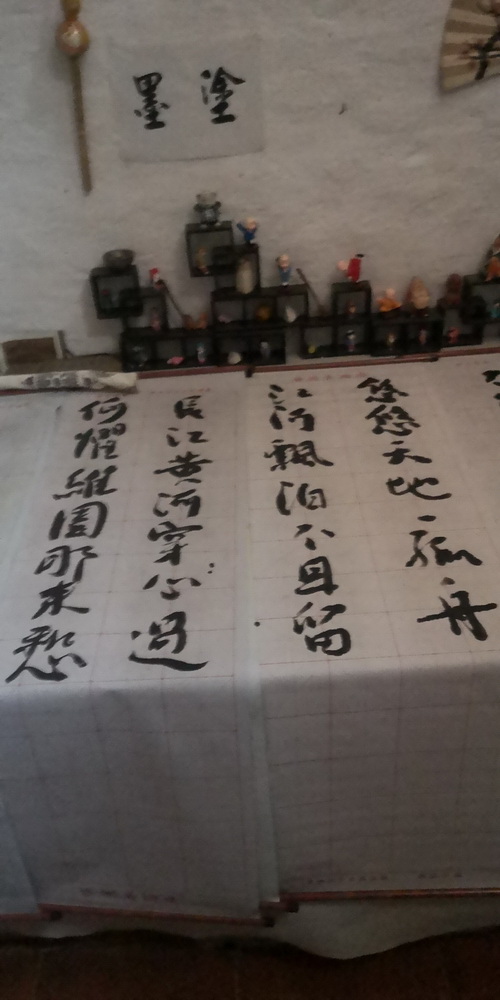 塗墨
悠悠天地一孤舟
江河飄泊不自留
長江黄河穿心過
何懼維園耶來愁